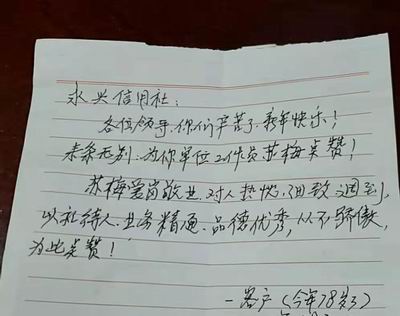 永兴信用社：
各位领导，你们辛苦了，新年快乐！
来条无别：为你单位工作员苏梅点赞！
苏梅爱岗敬业，对人热忱，细致周到，
以礼待人，业务精通，品德优秀，从不骄傲，
为此点赞！
一客户（今年78岁了）